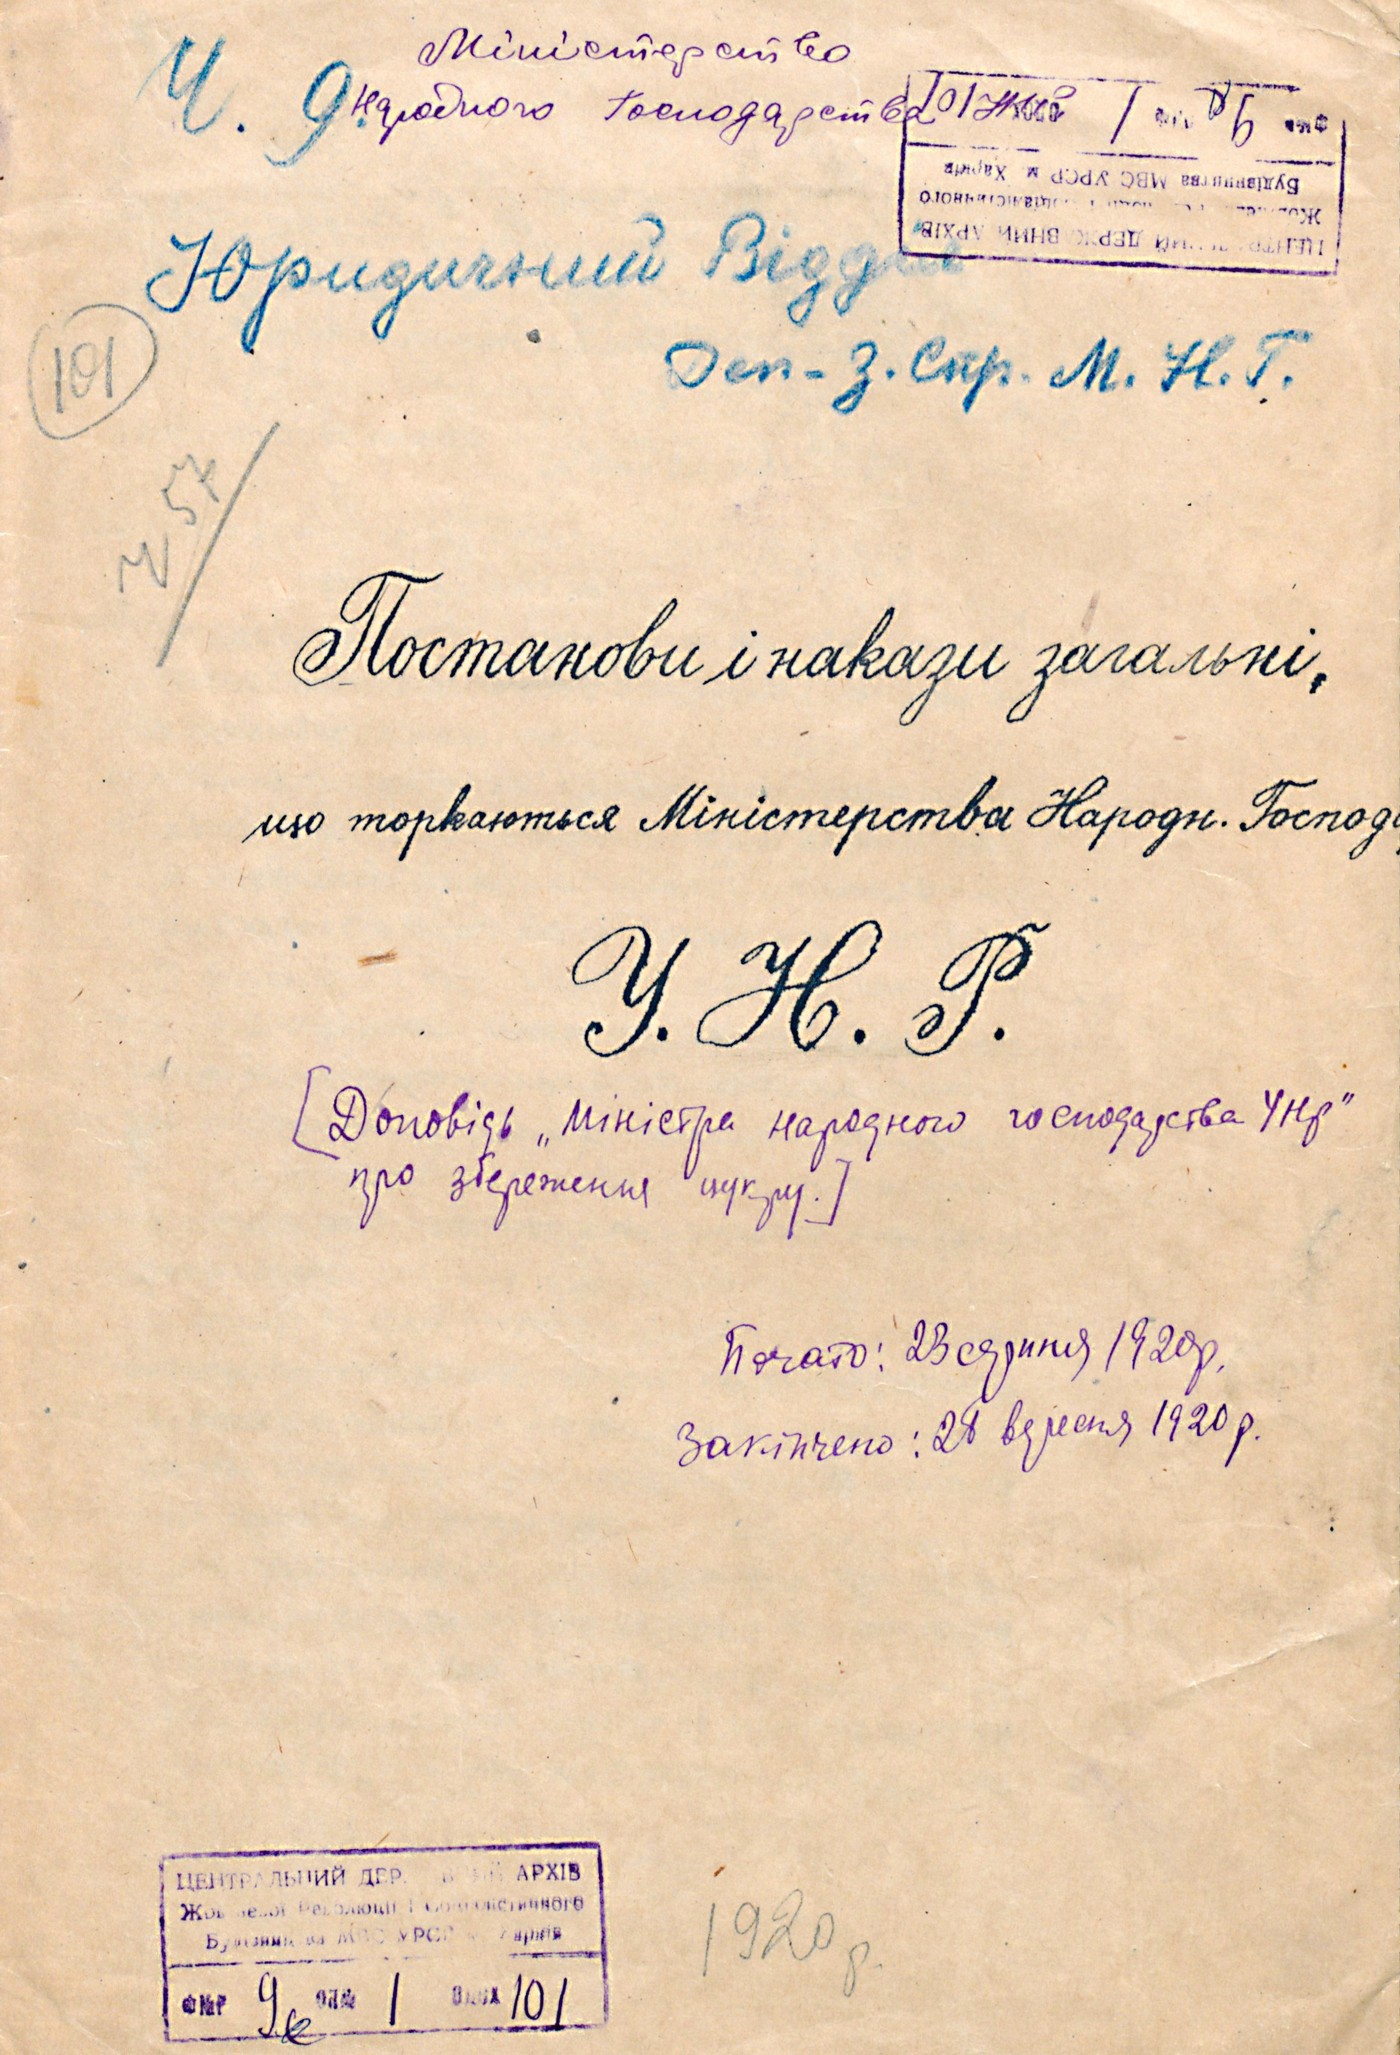 Міністерство
Ч. 9.
Народного Господарства
Юридичний Відділ
Деп-З. Спр. М. Н. Г.
101
Ч 57
Постанови і накази загальні,
що торкаються Міністерства Народн. Господ
У. Н. Р.
[Доповідь „Міністра народного господарства УНР"
про збереження цукру.]
Почато: 23 серпня 1920 р.
Закінчено: 28 вересня 1920 р.
ЦЕНТРАЛЬНИЙ ДЕРЖАВНИЙ АРХІВ
Жовтневої Революції і Соціалістичного
Будівництва МВС УРСР м. Харків
1
101
ЦЕНТРАЛЬНИЙ ДЕРЖАВНИЙ АРХІВ
Жовтневої Революції і Соціалістичного
Будівництва МВС УРСР м. Харків
ФНР 9 ОП№ 1 101
1920 р.